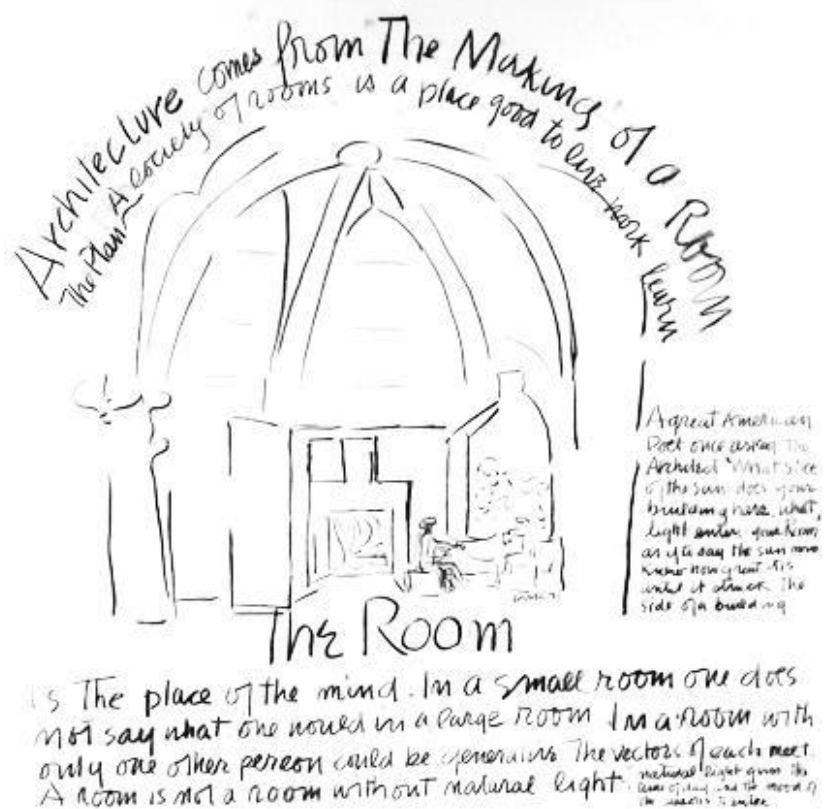 Architecture comes from The Making of a Room
The Plan A society of rooms is a place good to live work learn
A great American
Poet once asked The
Architect 'What slice
of the sun does your
building have, what
light enters your Room
as if to say the sun never
knew how great it is
until it struck The
side of a building
The Room
is The place of the mind. In a small room one does
not say what one would in a large room In a room with
only one other person could be generative The vectors of each meet.
A room is not a room without natural light.
natural light gives the
time of day and the mood of
the seasons to enter